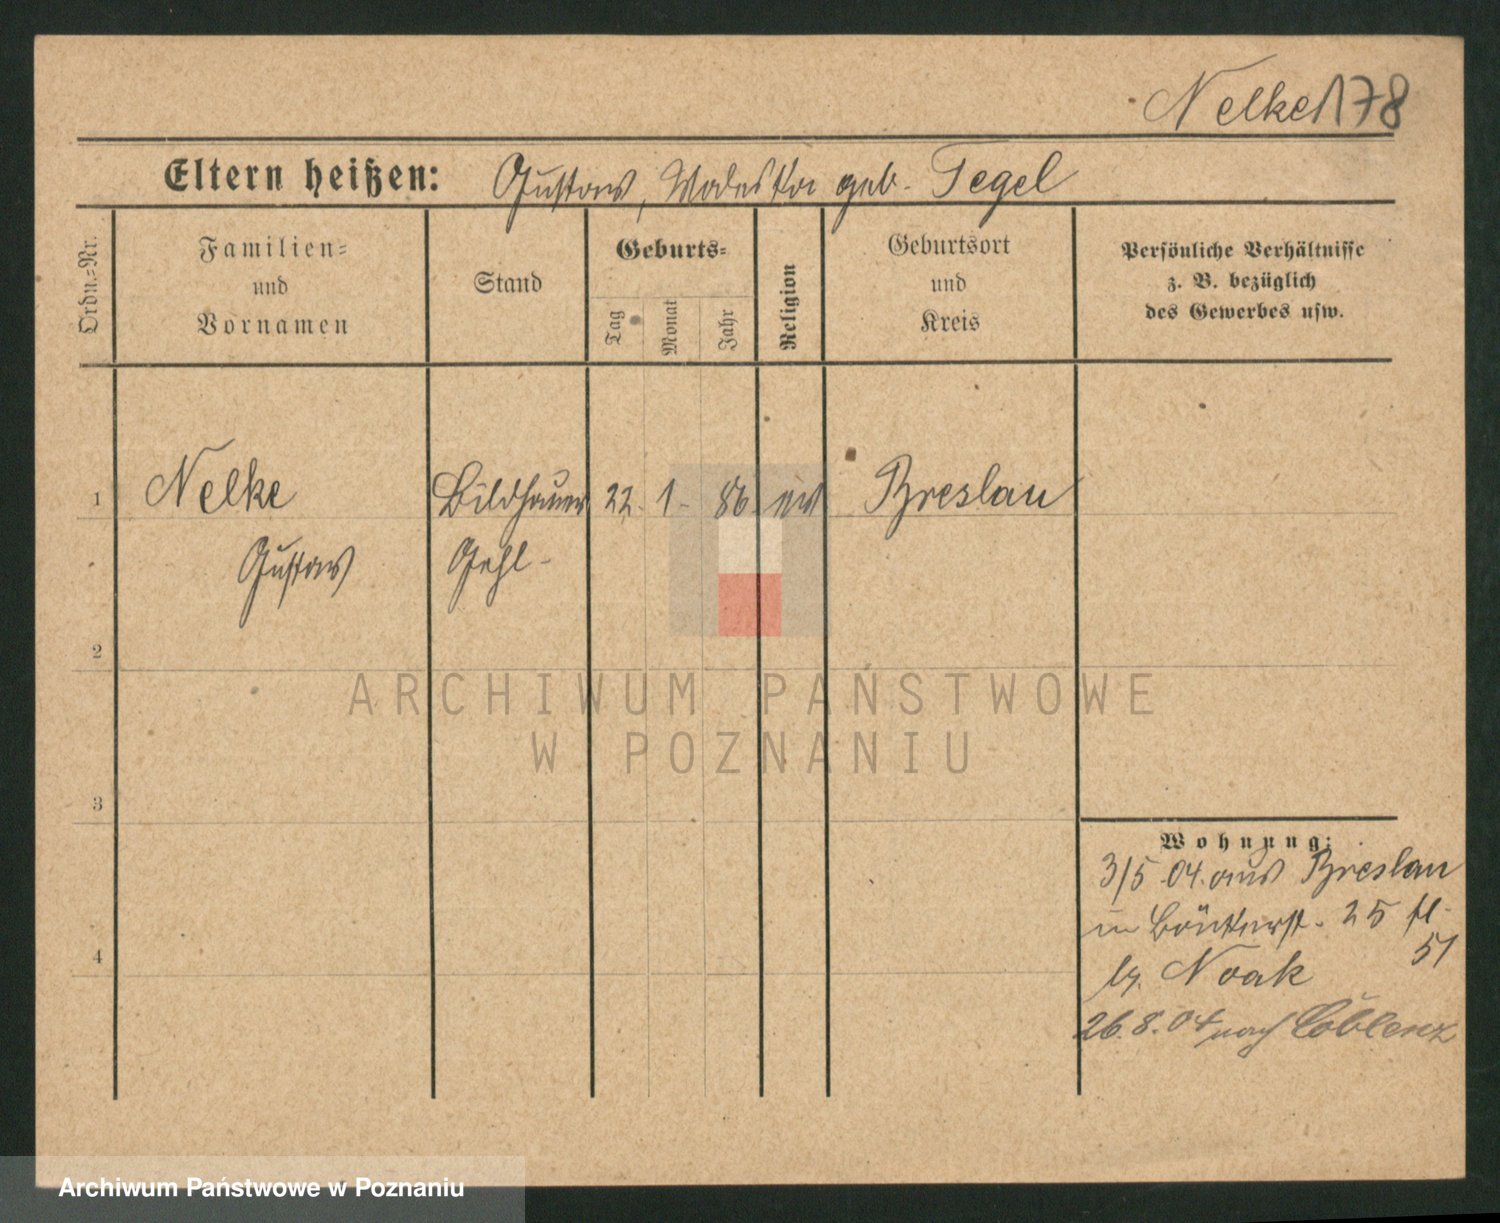 Nelke 178
Eltern heißen: Gustav, Valeska geb. Tegel
Ordn.=Nr.
Familien=
und
Vornamen
Stand
Geburts=
Tag
Monat
Jahr
Religion
Geburtsort
und
Kreis
Persönliche Verhältnisse
z. B. bezüglich
des Gewerbes usw.
1 Nelke Bildhauer 22. 1. 86. Breslau
Gustav Gehl.
2
3
4
Wohnung:
3/5 04. aus Breslau
in 25
51
b. Noak
26.8.04 nach Coblenz
ARCHIWUM PAŃSTWOWE
W POZNANIU
Archiwum Państwowe w Poznaniu